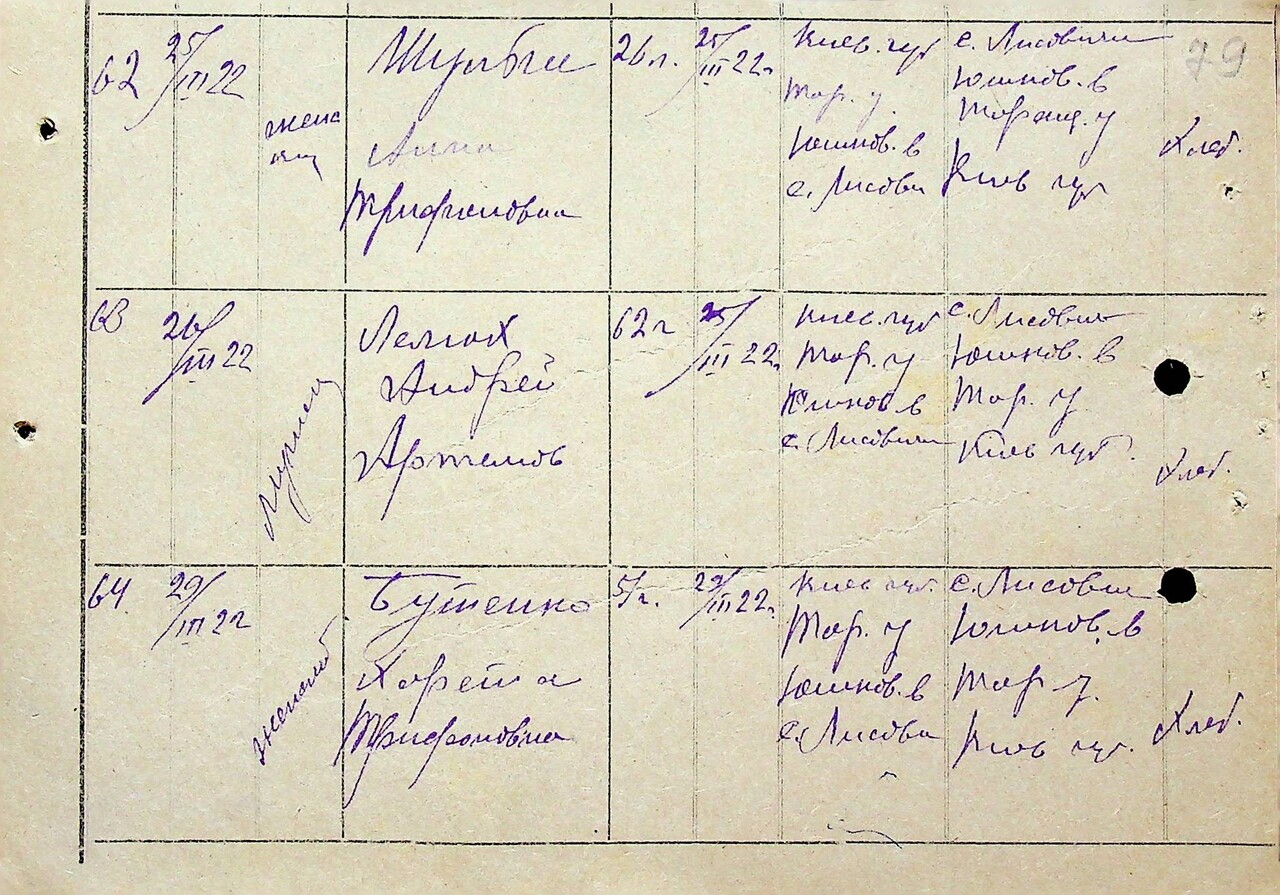 79
62
25/III 22
женс
кий
Шульга
Анна
Трифоновна
26 л.
25/III 22 г.
Киев. губ
Тар. у.
Юшков. в
с. Лисови
с. Лисовичи
Юшков. в
Таращ. у
Киев губ
Хлеб.
63
26/III 22
Мужск
Лемюх
Андрей
Артемов
62 г
25/III 22 г.
Киев. губ
Тар. у
Юшков. в
с. Лисовичи
с. Лисович
Юшков. в
Тар. у
Киев губ.
Хлеб.
64
29/III 22
женский
Бутенко
Харетина
Трифоновна
51 г.
29/III 22 г.
Киев губ.
Тар. у
Юшков. в
с. Лисови
с. Лисович
Юшков. в
Тар у.
Киев губ.
Хлеб.